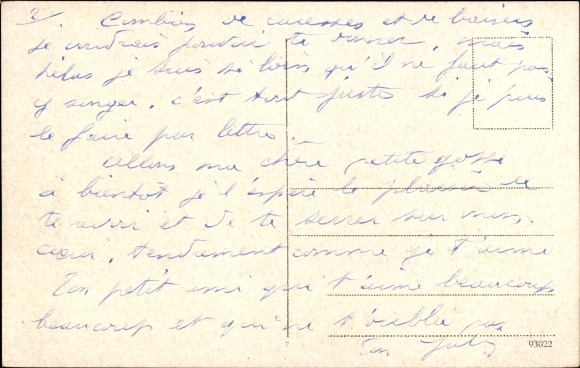 2/. Combien de caresses et de baisers
je voudrais pouvoir te donner, mais
hélas je suis si loin qu'il ne faut pas
y songer, c'est tout juste si je puis
le faire par lettre.
Allons ma chère petite gosse
à bientôt je l'espère le plaisir de
te avoir et de te serrer sur mon
cœur, tendrement comme je t'aime
Ton petit ami qui t'aime beaucoup
beaucoup et qui ne t'oublie pas
Ton
03022